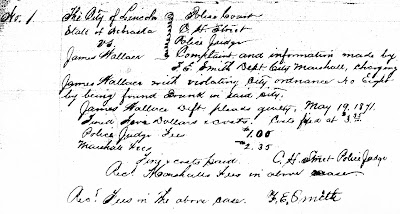 No. 1. The City of Lincoln } Police Court
State of Nebraska } C. H. Street
vs } Police Judge
James Wallace } Complaint and information made by
T. E. Smith Dept City Marshall, charging
James Wallace with violating City ordinance No Eight
by being found Drunk in said city.
James Wallace Deft pleads guilty. May 19, 1871.
Fined Five Dollars & costs. Costs filed at $3.35
Police Judge Fees $1.00
Marshall Fees "2.35
Fine & costs paid C. H. Street Police Judge
Rec' Marshalls Fees in above case
Rec' Fees in the above case. T. E. Smith